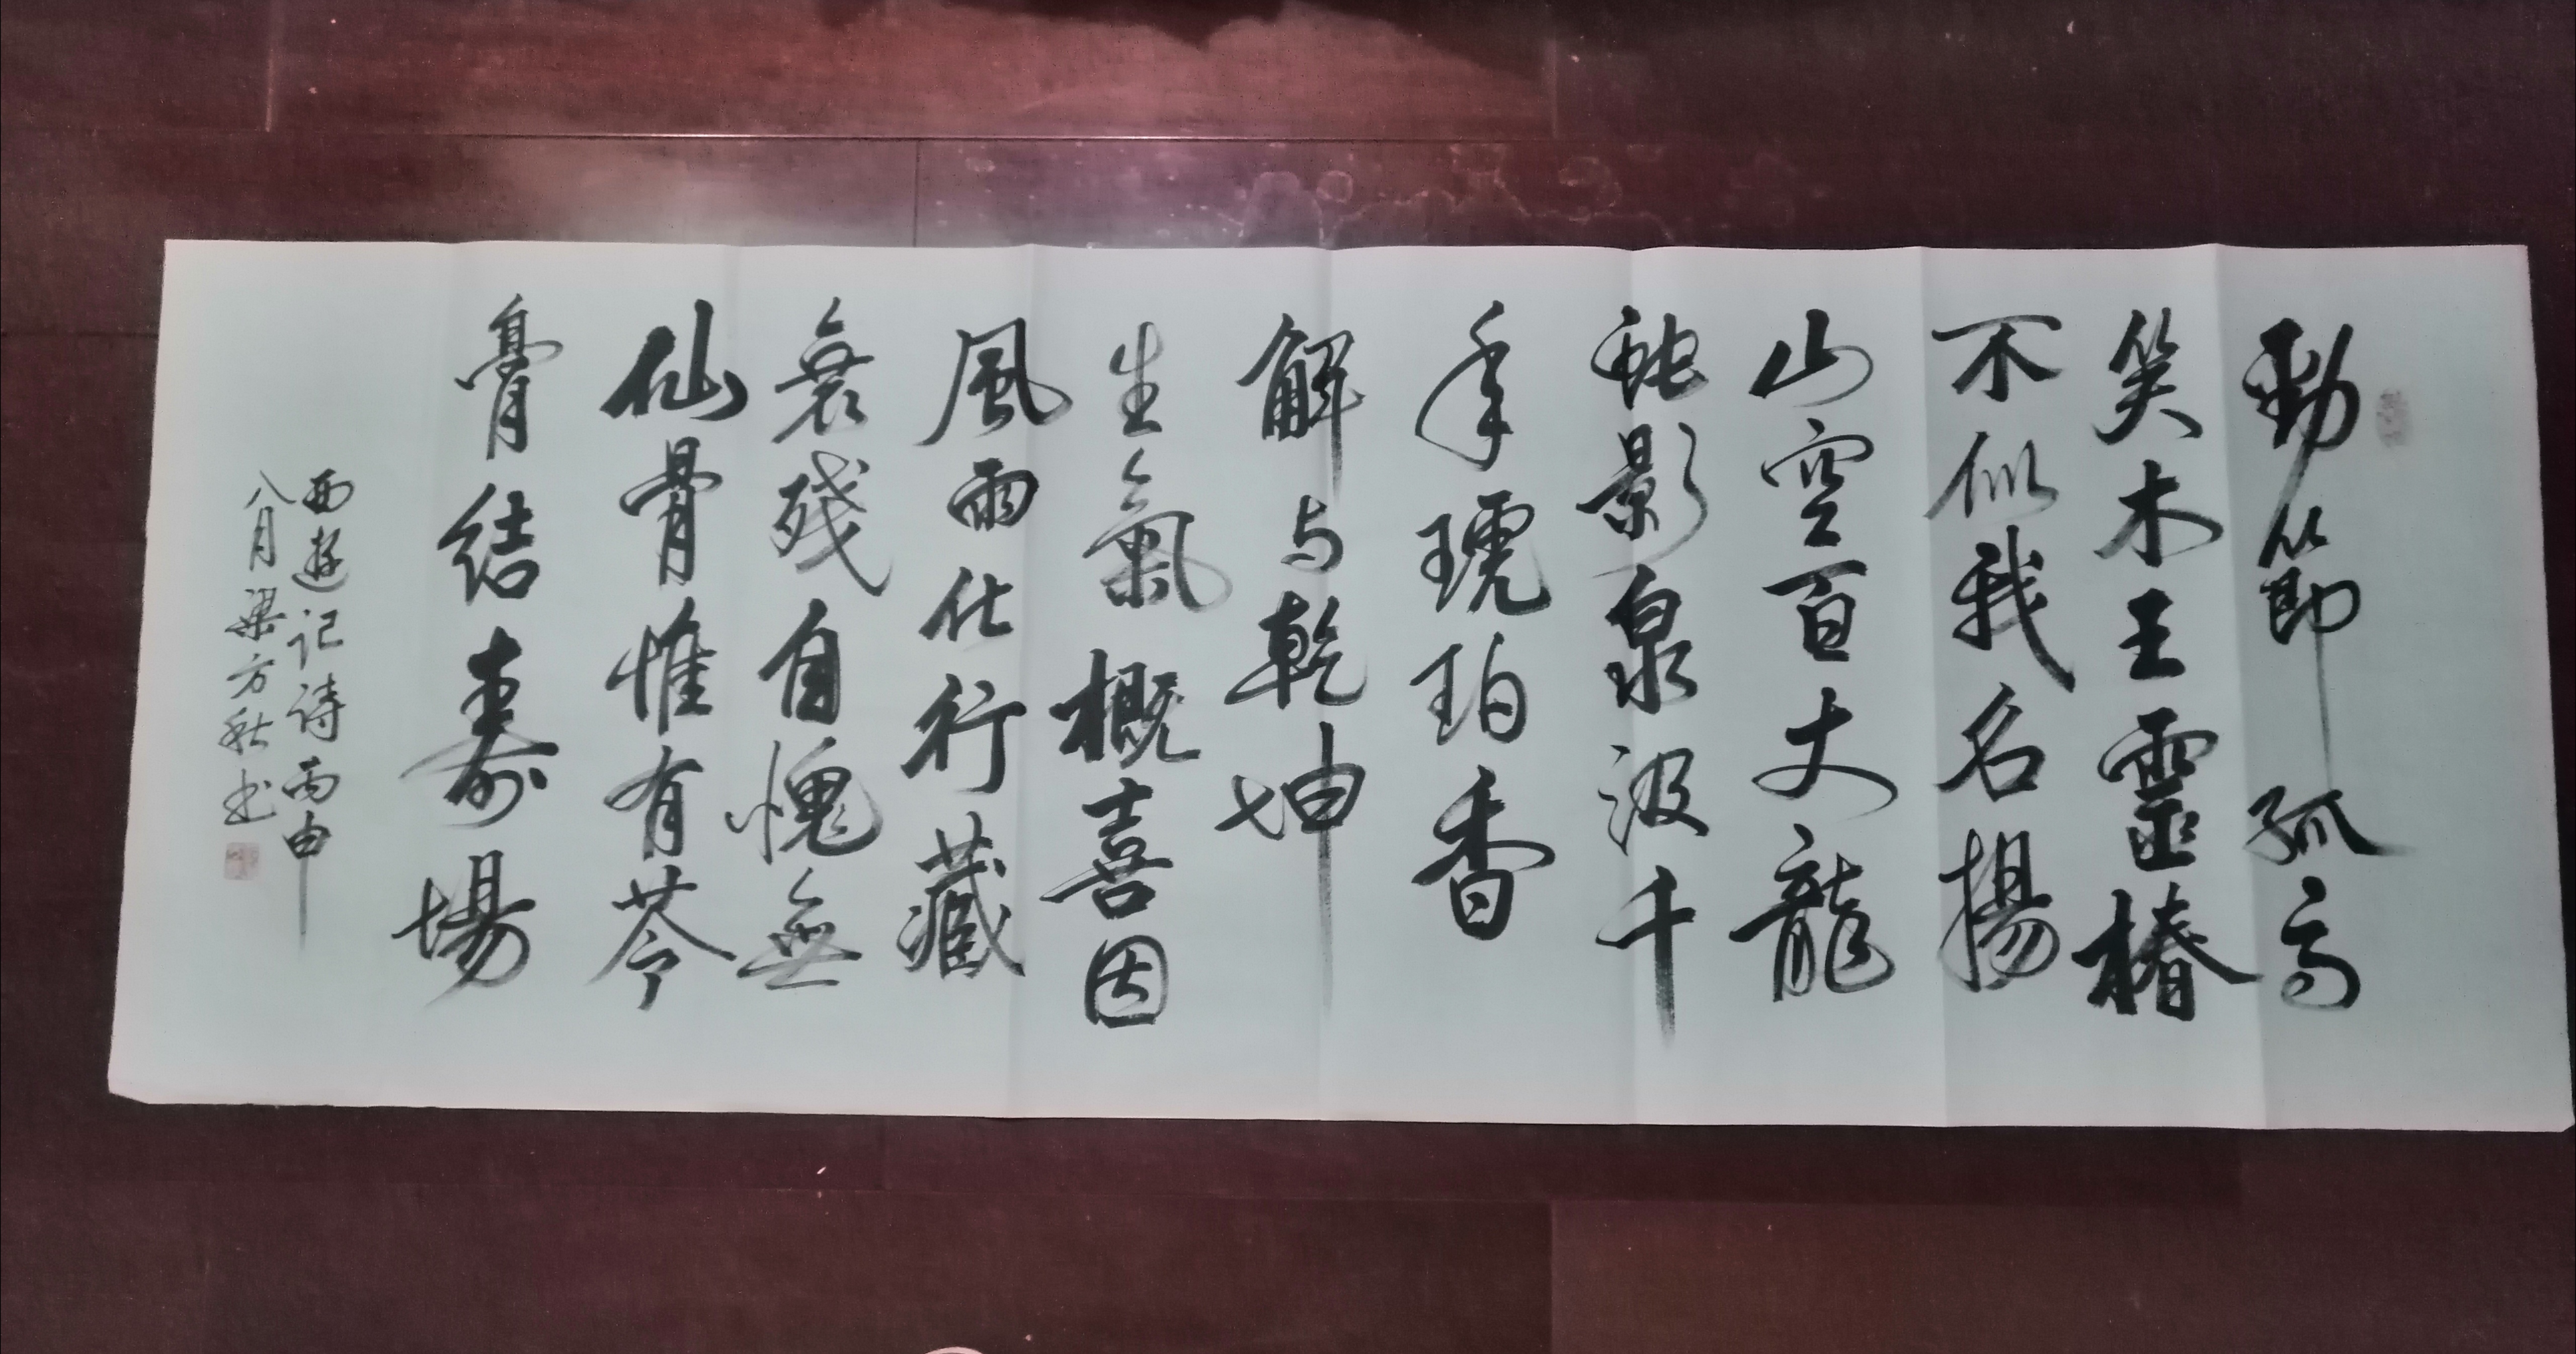 勁節孤高
笑木王靈椿
不似我名揚
山空百丈龍
蛇影泉汲千
年琥珀香
解与乾坤
生氣概喜因
風雨化行藏
衰殘自愧無
仙骨惟有苓
膏結壽場
西遊记诗丙申
八月梁方秋书